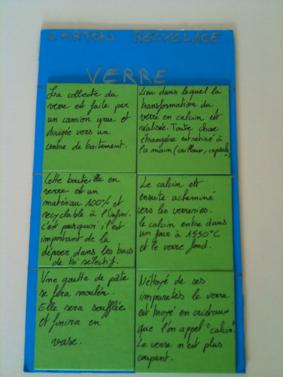 CARTON RECYCLAGE
VERRE
La collecte du
verre est faite par
un camion grue et
dirigée vers un
centre de traitement.
Lieu dans lequel la
transformation du
verre en calcin est
réalisée. Toute chose
étrangère est retiré à
la main (cailloux, capsule
Cette bouteille en
verre est un
matériau 100% et
recyclable à l'infini.
C'est pourquoi, il est
important de la
déposer dans les bacs
de tri sélectif.
Le calcin est
ensuite acheminé
vers les verreries.
le calcin entre dans
un four à 1550°C
et le verre fond.
Une goutte de pâte
se fera mouler.
Elle sera soufflée
et finira en
vase.
Nettoyé de ses
impuretés le verre
est broyé en cristaux
que l'on appel "calcin"
Le verre n'est plus
coupant.